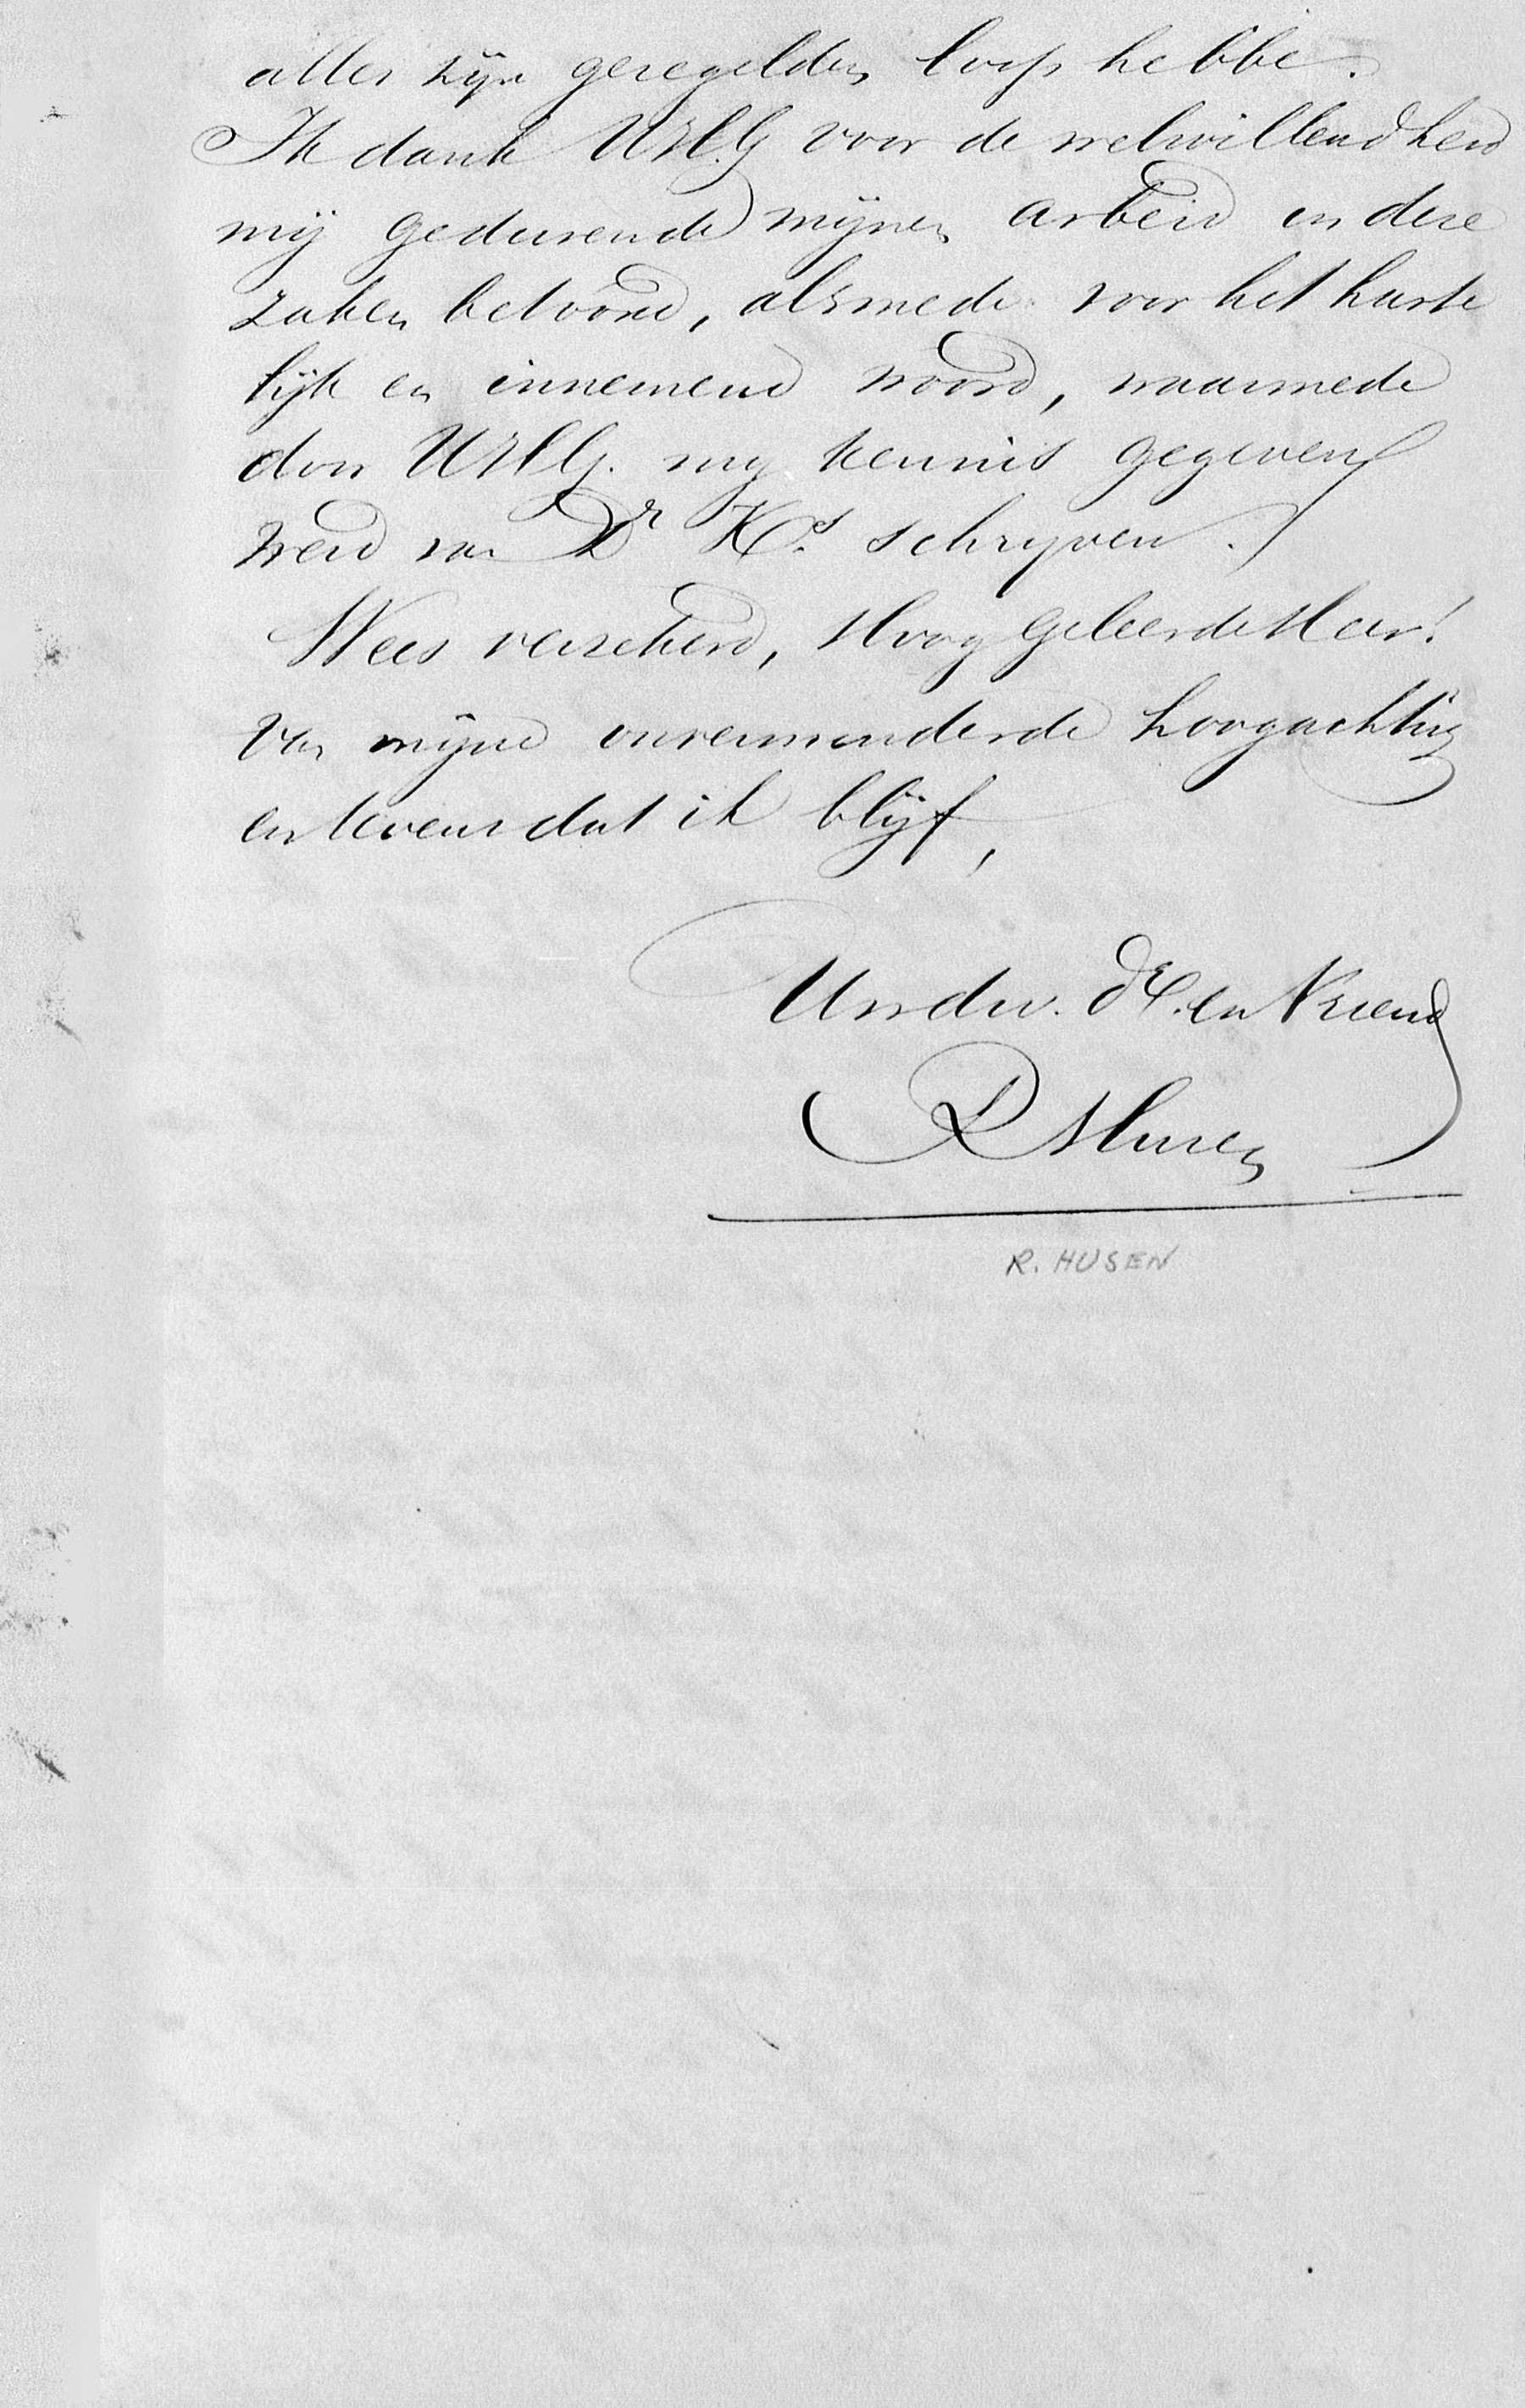 alles zijn geregelden loop hebbe.
Ik dank UHG voor de welwillendheid
mij gedurende mijnen arbeid in deze
zaken betoond, alsmede voor het harte
lijk en innemend woord, waarmede
door UHG. my kennis gegeven
werd van Dr K.s schryven.
Wees verzekerd, Hoog Geleerde Heer!
van mijne onverminderde hoogachting
en tevens dat ik blijf,
Uw dw. dr. en Vriend
R Husen
R. HUSEN